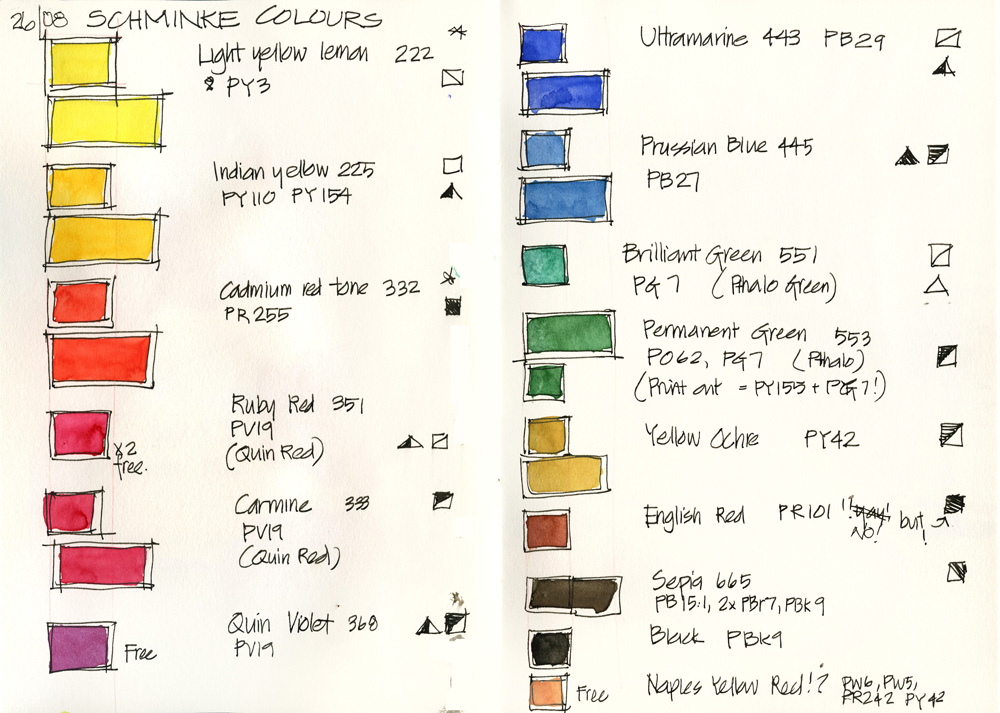 26/08 SCHMINKE COLOURS
Light yellow lemon 222
PY3
Indian yellow 225
PY110 PY154
Cadmium red tone 332
PR255
Ruby Red 351
PV19
(Quin Red)
x2
free.
Carmine 333
PV19
(Quin Red)
Quin Violet 368
PV19
Free
Ultramarine 443 PB29
Prussian Blue 445
PB27
Brilliant Green 551
PG7 (Phalo Green)
Permanent Green 553
PO62, PG7 (Phalo)
(Print out = PY155 + PG7!)
Yellow Ochre PY42
English Red PR101 !! but!
No!
Sepia 665
PB15:1, 2xPBr7, PBk9
Black PBk9
Free Naples Yellow Red!? PW6, PW5,
PR242 PY42